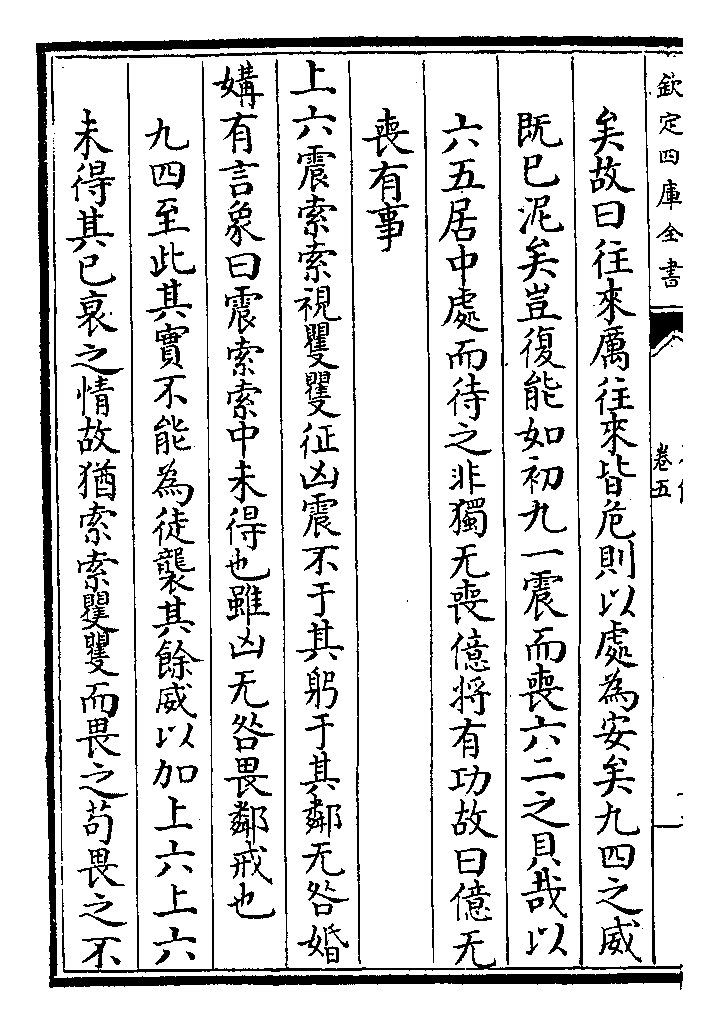 欽定四庫全書
卷五
矣故曰往來厲往來皆危則以處為安矣九四之威
既已泥矣豈復能如初九一震而喪六二之貝哉以
六五居中處而待之非獨无喪億將有功故曰億无
喪有事
上六震索索視矍矍征凶震不于其躬于其鄰无咎婚
媾有言象曰震索索中未得也雖凶无咎畏鄰戒也
九四至此其實不能為徒襲其餘威以加上六上六
未得其已衰之情故猶索索矍矍而畏之苟畏之不